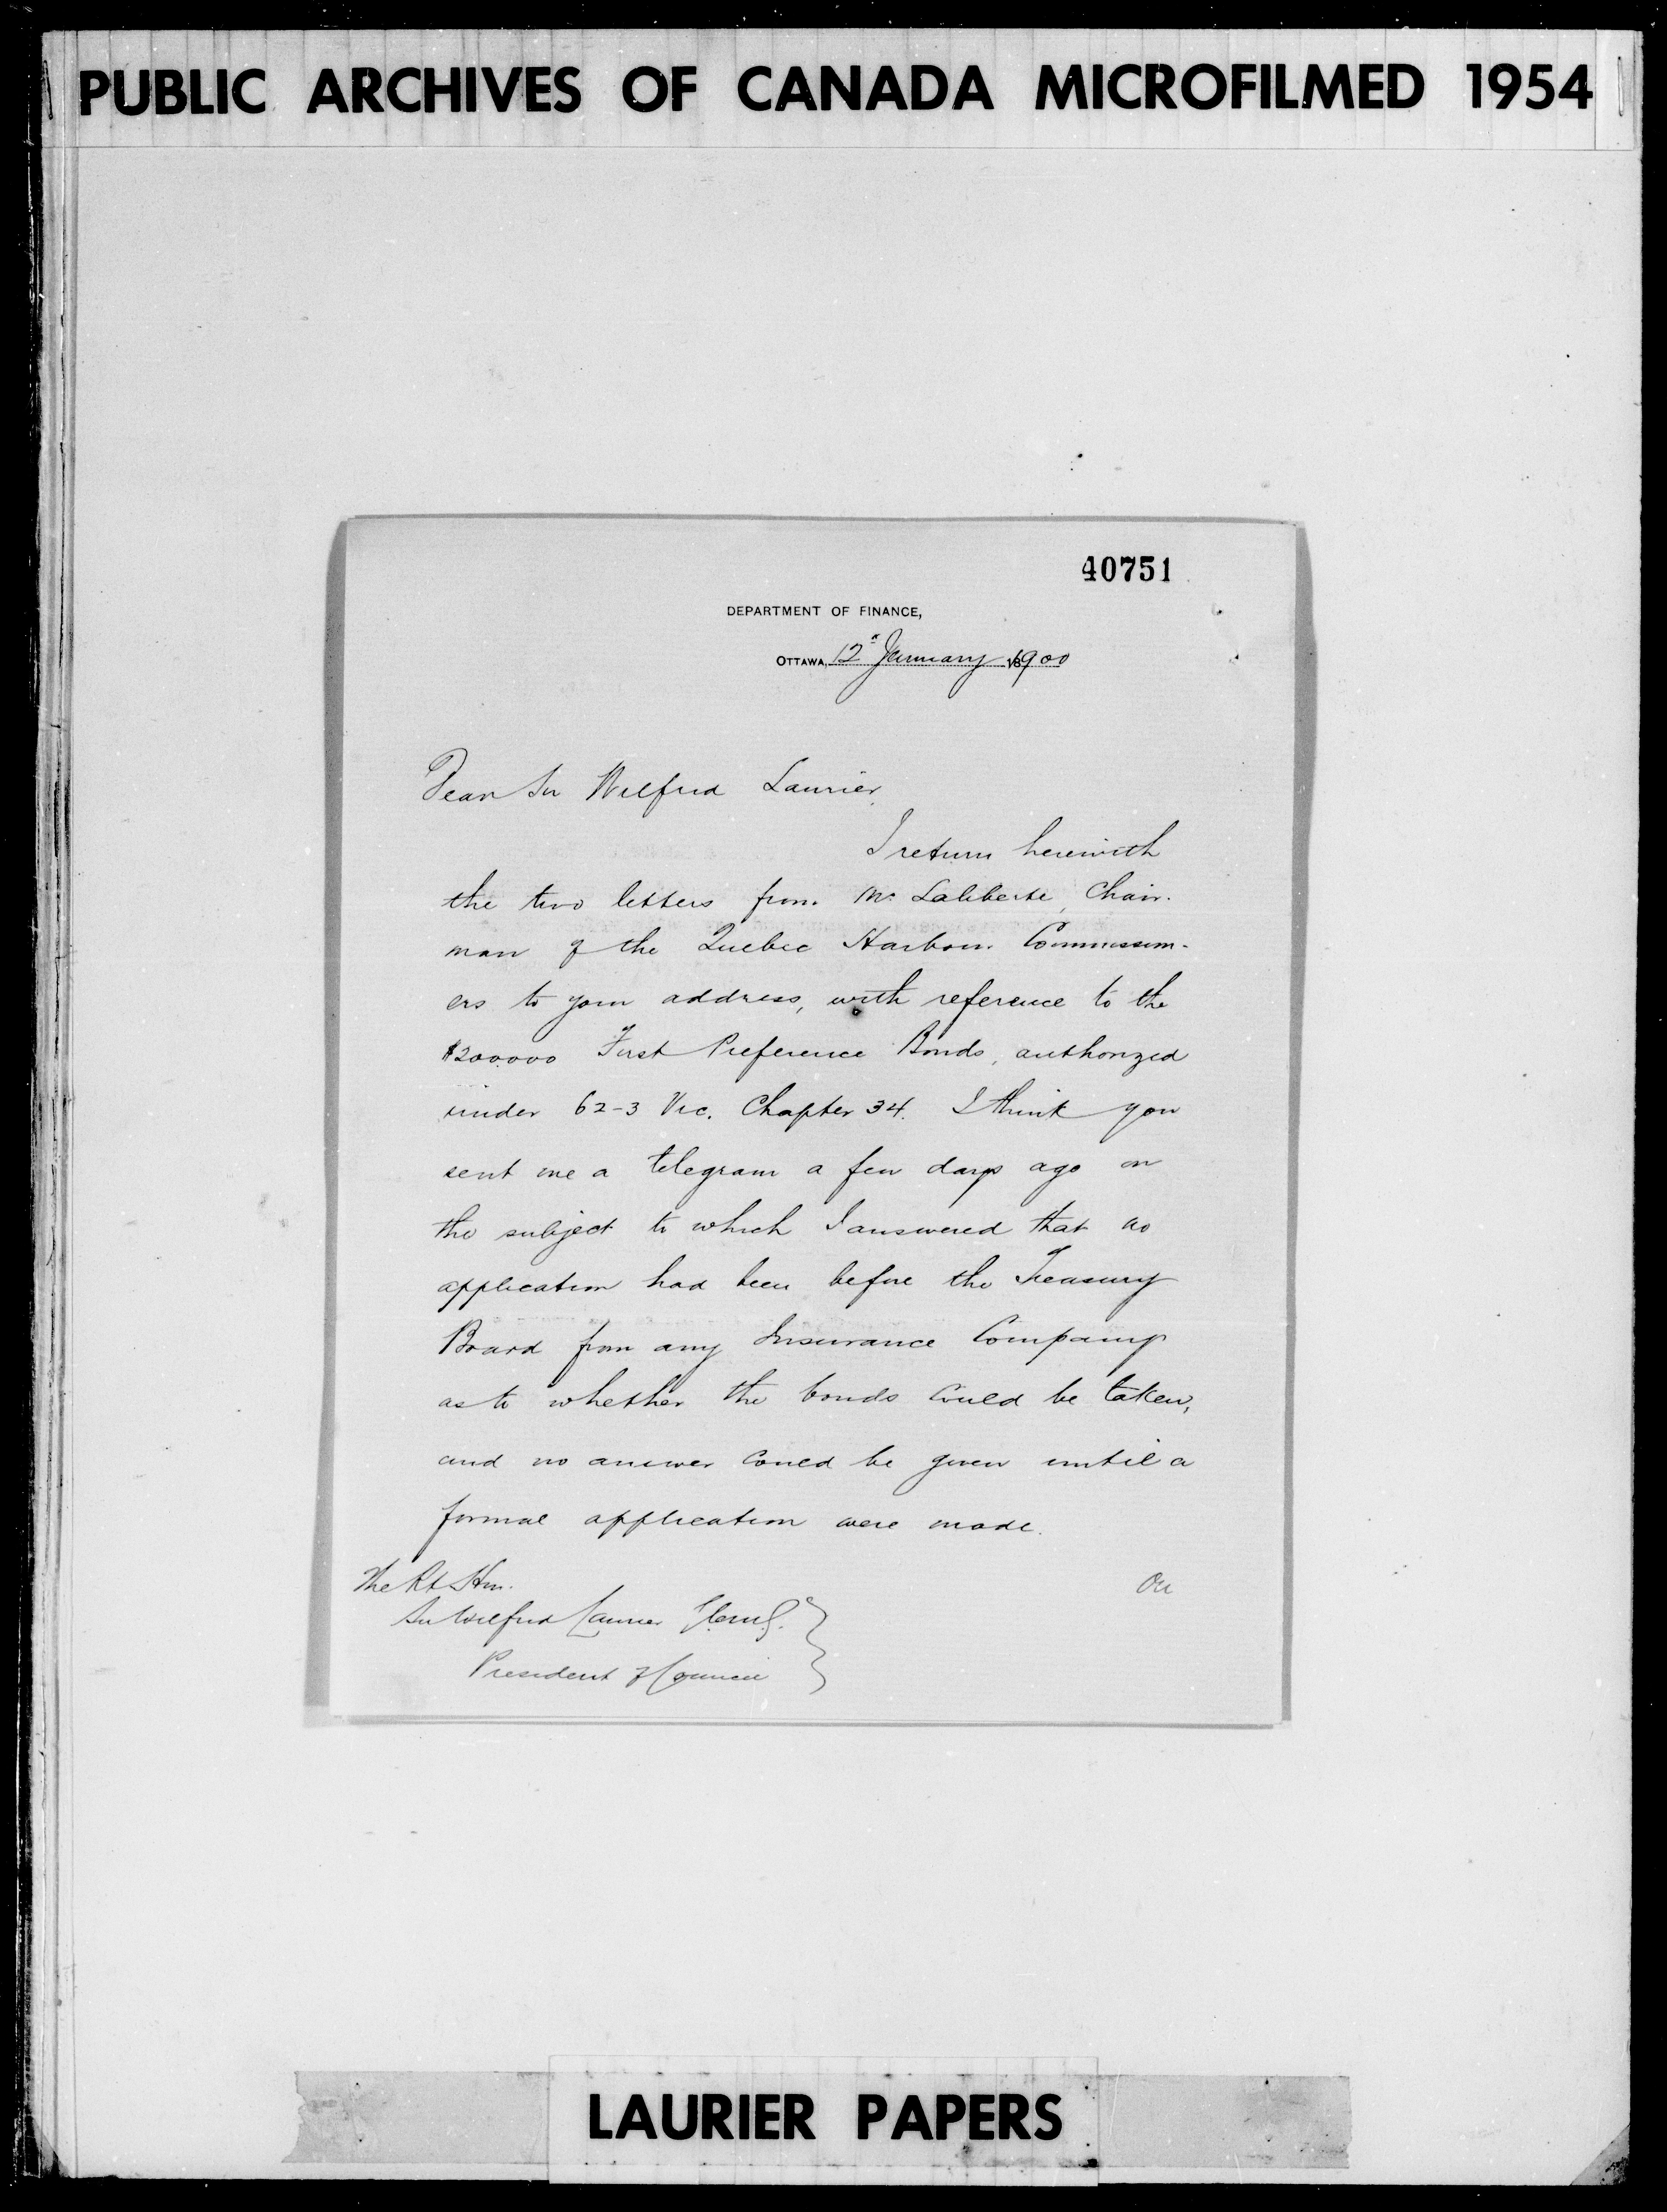 PUBLIC ARCHIVES OF CANADA MICROFILMED 1954
40751
DEPARTMENT OF FINANCE,
OTTAWA, 12th January 1900
Dear Sir Wilfrid Laurier,
I return herewith
the two letters from Mr Laliberte, Chair-
man of the Quebec Harbour Commission-
ers to your address, with reference to the
$200.000 First Preference Bonds, authorized
under 62-3 Vic. Chapter 34. I think you
sent me a telegram a few days ago on
the subject to which I answered that no
application had been before the Treasury
Board from any Insurance Company
as to whether the bonds could be taken,
and no answer could be given until a
formal application were made.
The Rt Hon.
Sir Wilfrid Laurier G.C.M.G.
President of Council
On
LAURIER PAPERS